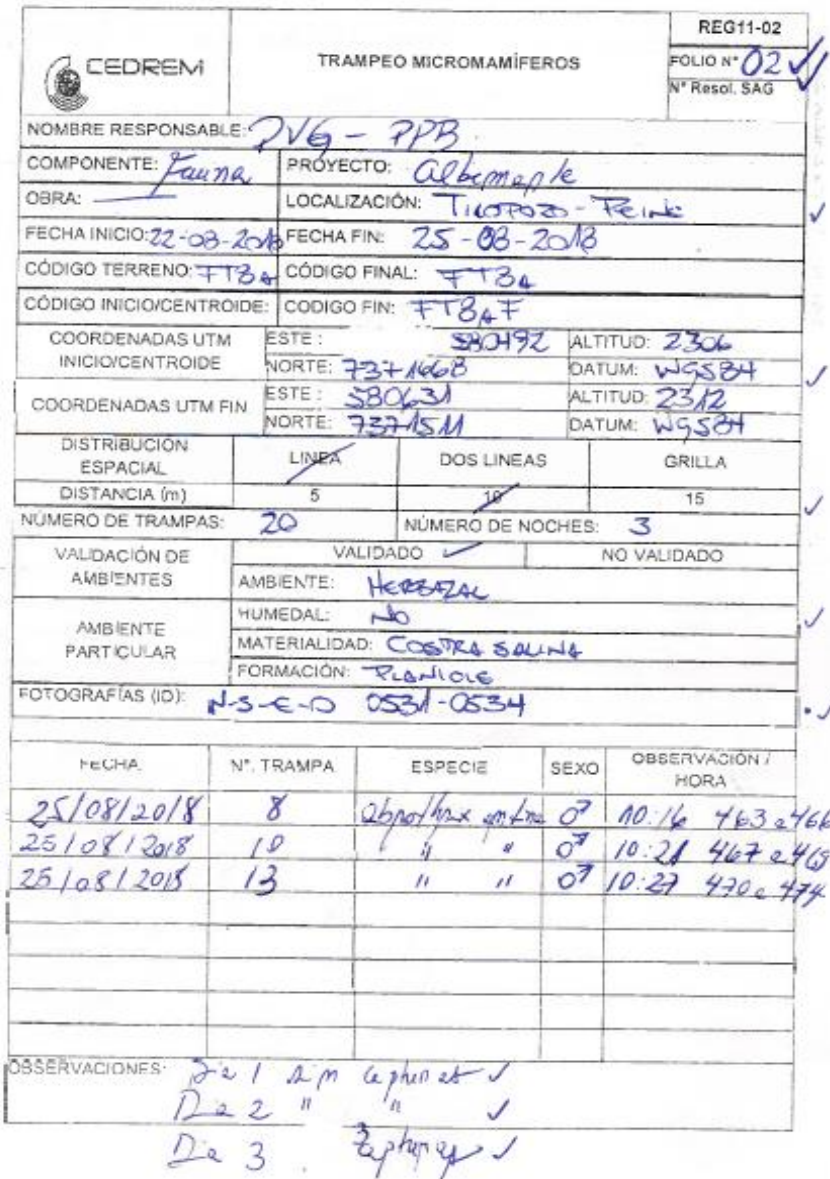 REG11-02
CEDREM
TRAMPEO MICROMAMÍFEROS
FOLIO N° 02
N° Resol. SAG
NOMBRE RESPONSABLE: PVG - PPB
COMPONENTE: Fauna PROYECTO:
OBRA: LOCALIZACIÓN: TILOPOZO - PEINE
FECHA INICIO: 22-08-2018 FECHA FIN: 25-08-2018
CÓDIGO TERRENO: FT8A CÓDIGO FINAL: FT8A
CÓDIGO INICIO/CENTROIDE: CODIGO FIN: FT8AF
COORDENADAS UTM INICIO/CENTROIDE ESTE : 580492 ALTITUD: 2306
NORTE: 7371668 DATUM: WGS84
COORDENADAS UTM FIN ESTE : 580631 ALTITUD: 2312
NORTE: 7371511 DATUM: WGS84
DISTRIBUCIÓN ESPACIAL LINEA DOS LINEAS GRILLA
DISTANCIA (m) 5 10 15
NÚMERO DE TRAMPAS: 20 NÚMERO DE NOCHES: 3
VALIDACIÓN DE AMBIENTES VALIDADO NO VALIDADO
AMBIENTE: HERBAZAL
AMBIENTE PARTICULAR HUMEDAL: NO
MATERIALIDAD: COSTRA SALINA
FORMACIÓN:
FOTOGRAFÍAS (ID): N-S-E-O 0531-0534
FECHA N°. TRAMPA ESPECIE SEXO OBSERVACIÓN / HORA
25/08/2018 8 ♂ 10:16 463 a 466
25/08/2018 10 " " ♂ 10:21 467 a 469
25/08/2018 13 " " ♂ 10:27 470 a 474
OBSERVACIONES: Dia 1 sin
Dia 2 " "
Dia 3